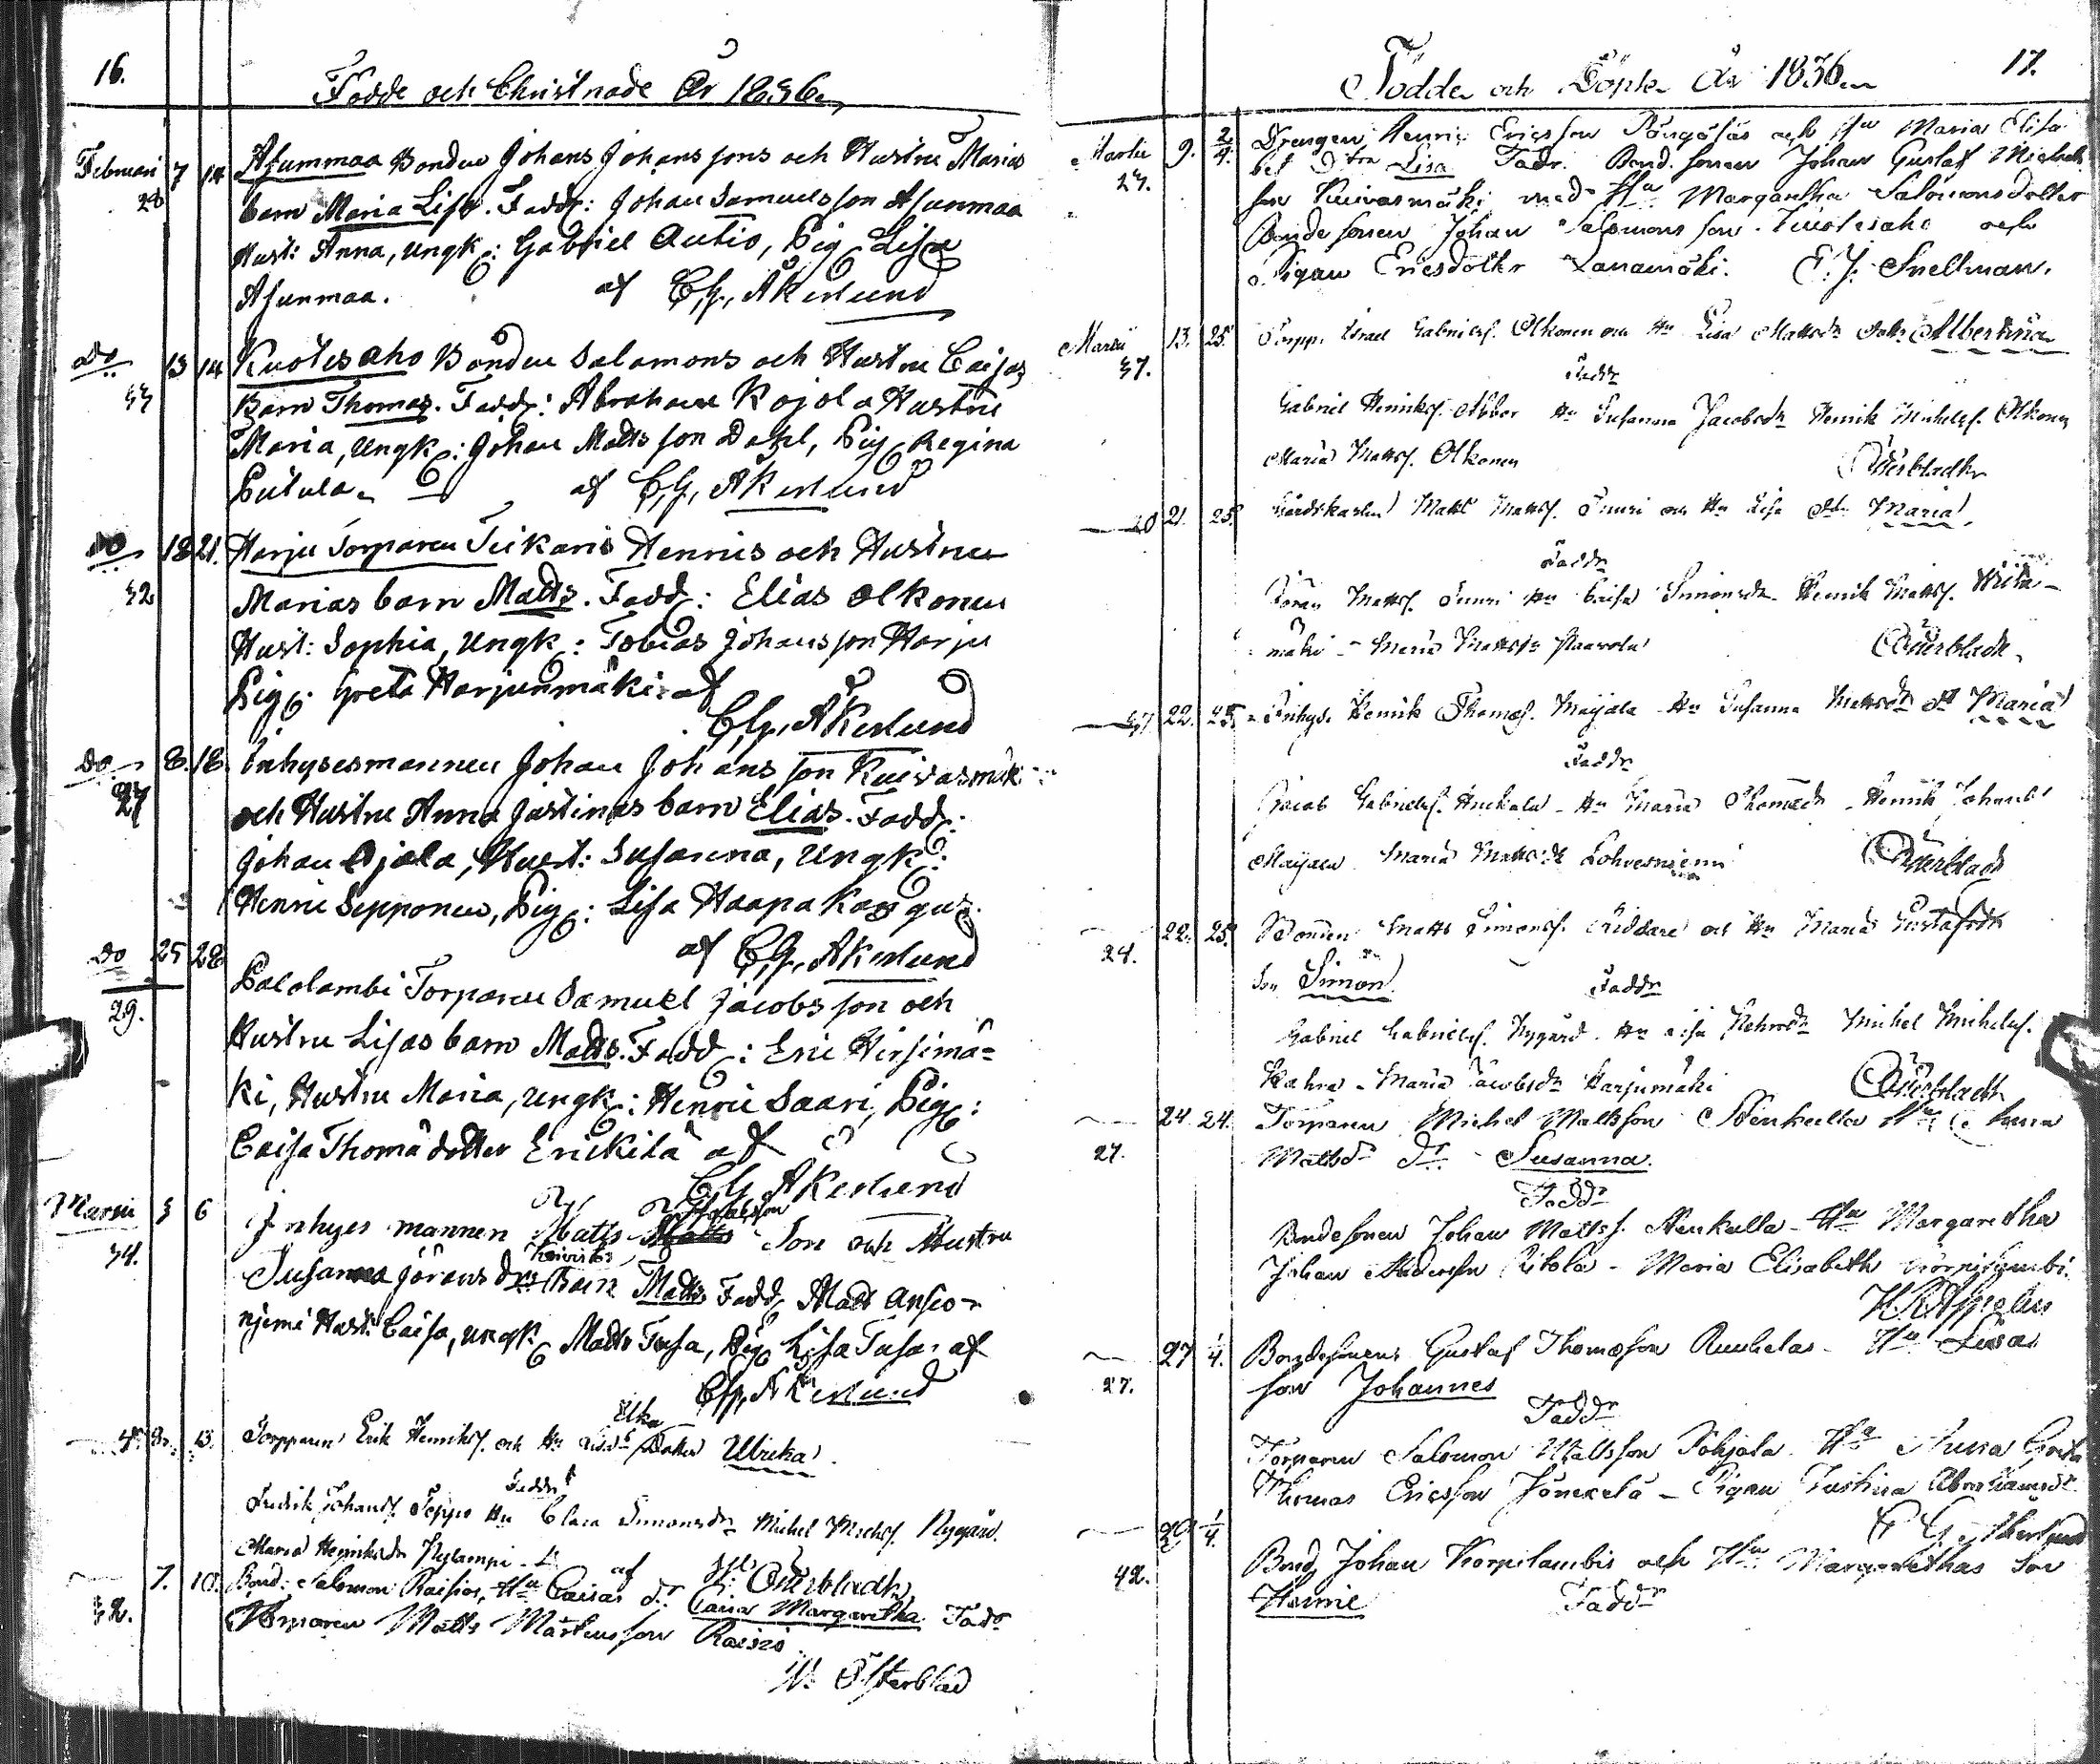 16.
Födde och Christnade År 1836.
Februari 7 14 Asunmaa Bonden Johans Johanssons och Hustru Marias
28 barn Maria Lisa. Fadd: Johan Samuelsson Asunmaa
Hust: Anna, Ungk: Gabriel Autio, Pig Lisa
Asunmaa. af C.G. Åkerlund
Do 13 14 Kuotesaho Bonden Salamons och Hustru Caisas
33 Barn Thomas. Fadd: Abraham Kojola Hustru
Maria, Ungk: Johan Mattsson Dahl, Pig Regina
af C.G. Åkerlund
Do 18 21. Harju Torparen Henris och Hustru
32 Marias barn Matts. Fadd: Elias Olkonen
Hust: Sophia, Ungk: Tobias Johansson Harju
Pig: Greta Harjunmäki af
C.G. Åkerlund
Do 8. 18. Inhysesmannen Johan Johansson Kuivasmäki
27 och Hustru Anna Justinas barn Elias. Fadd:
Johan Ojala, Hust: Susanna, Ungk:
Henric Sepponen, Pig: Lisa Haapakangas
af C.G. Åkerlund
Do 25 28 Torparen Samuel Jacobsson och
29. Hustru Lisas barn Matts. Fadd: Eric Hirsimä=
ki, Hustru Maria, Ungk: Henric Saari, Pig:
Caisa Thomä dotter Erickilä af
C.G. Åkerlund
Martii 3 6 Inhyses mannen Matts son och Hustru
34. Susanna Görans dr Barn Matts Fadd Matts
njemi Hust: Caisa, Ungk: Matts Tusa, Pig Lisa Tusa af
C.G. Åkerlund
8. 13. Torparen Erik Henriks. och Hu Dotter Ulrika
Fadd
Fredrik Johans. Seppo Hu Clara Simonsdr Michel Michels. Nygård.
Maria Henriksdr Kylämpi af Österbladh
7. 10. Bond: Salomon Raisios, Hu Caisas dr Caisa Margaretha Fadr
32. Torparen Matts Mårtensson Raisio
N. Österblad
17.
Födde och Döpte År 1836
Martii 9. 2/4. Drengen Henric Ericsson Pöngäsäs och Hu Maria Elisa
27. bet Dtra Lisa Fadr. Bond.sonen Johan Gustaf Michels
son Kuivasmäki med Hu Margaretha Salomonsdotter
Bondesonen Johan Salomonsson Kuotesaho och
Pigan Ericsdotter Lanamäki. E. J. Snellman.
Martii 13. 25. Torpp. Israel Gabrielss. Olkonen och Hu Lisa Mattsdr dottr Albertina
37.
Faddr
Gabriel Henrikss. Hu Susanna Jacobsdr Henrik Michelss. Olkonen
Maria Mattss. Olkonen Österbladh
20 21. 25. Gårdskarlen Matts Mattss. och Hu Lisa dtr Maria
Faddr
Göran Mattss. Hu Caisa Simonsdr Henrik Mattss.
mäki - Maria Mattsdr Paavola Österbladh
37 22. 25. Inhys. Henrik Thomæs. Maijala Hu Susanna Mattsdr dr Maria
Faddr
Jacob Gabrielss. Hu Maria Thomædr Henrik Johanss
Maijala Maria Mattsdr Lohvesniemi Österbladh
22. 25. Bonden Matts Simonss. Riddare och Hu Maria Gustafsdr
24. Son Simon. Faddr
Gabriel Gabrielss. Nygård Hu Michel Michelss.
Maria Jacobsdr Harjumäki Österbladh
24. 24. Torparen Michel Mattsson Hu Anna
27. Mattsdr dr Susanna.
Faddr
Bondesonen Johan Mattss. Hu Margaretha
Johan Andersson Ritola - Maria Elisabeth Korpilambi.
H. R. Appelius
27 1/4. Bondesonens Gustaf Thomæson Ruuhelas Hu Lisas
27. son Johannes
Faddr
Torparen Salomon Mattsson Pohjala Hu Anna Greta
Thomas Ericsson Jämcelä - Pigan Justina Abrahamsdr
C. G. Åkerlund
29 1/4. Bond Johan Korpilambis och Hu Margarethas Son
42. Henric Faddr